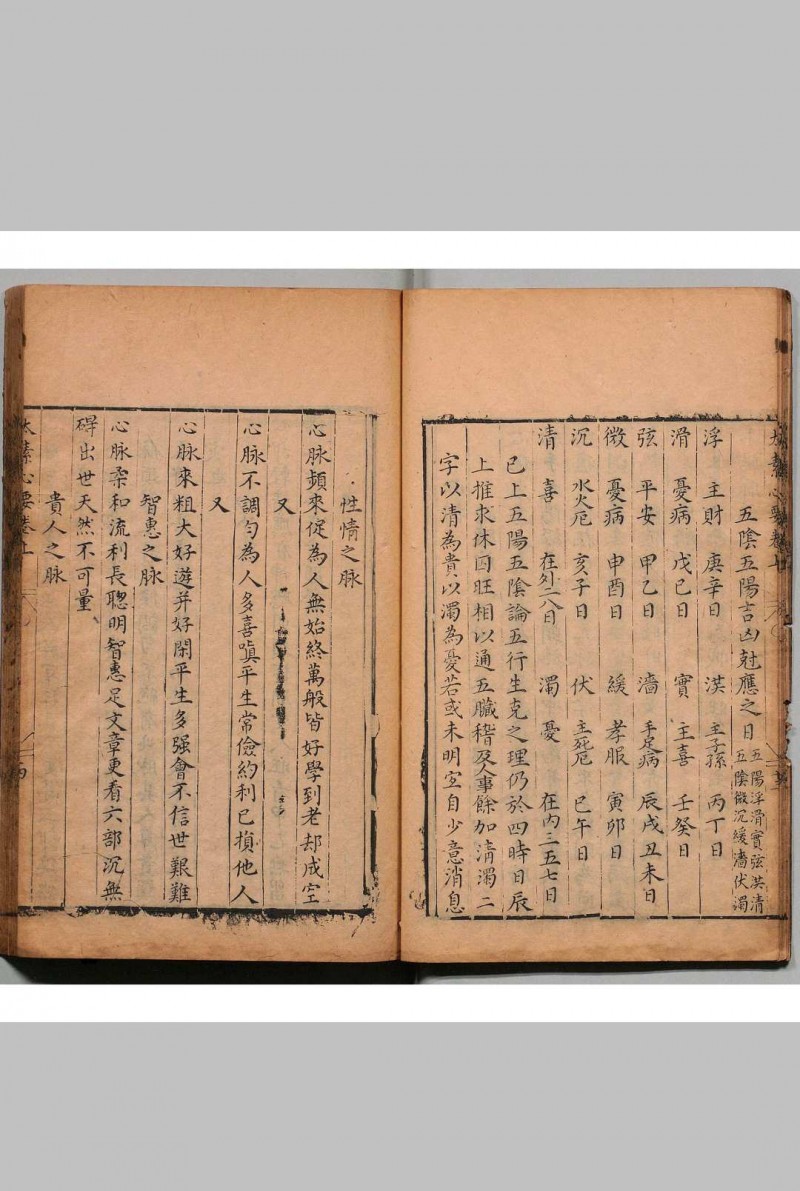 五陰五陽吉凶尅應之日 五陽浮滑實弦洪清 五陰微沉緩濇伏濁
浮 主財 庚辛日 洪 主子孫 丙丁日
滑 憂病 戊己日 實 主喜 壬癸日
弦 平安 甲乙日 濇 手足病 辰戌丑未日
微 憂病 申酉日 緩 孝服 寅卯日
沉 水火厄 亥子日 伏 主死厄 巳午日
清 喜 在外二八日 濁 憂 在內三五七日
已上五陽五陰論五行生克之理仍於四時日辰
上推求休囚旺相以通五臟稽及人事餘加清濁二
字以清為貴以濁為憂若或未明空自少意消息
性情之脉
心脉頻來促為人無始終萬般皆好學到老却成空
又
心脉不調勻為人多喜嗔平生常儉約利己損他人
又
心脉來粗大好遊并好閑平生多强會不信世艱難
智惠之脉
心脉柔和流利長聰明智惠足文章更看六部沉無
碍出世天然不可量
貴人之脉
太素心要卷上